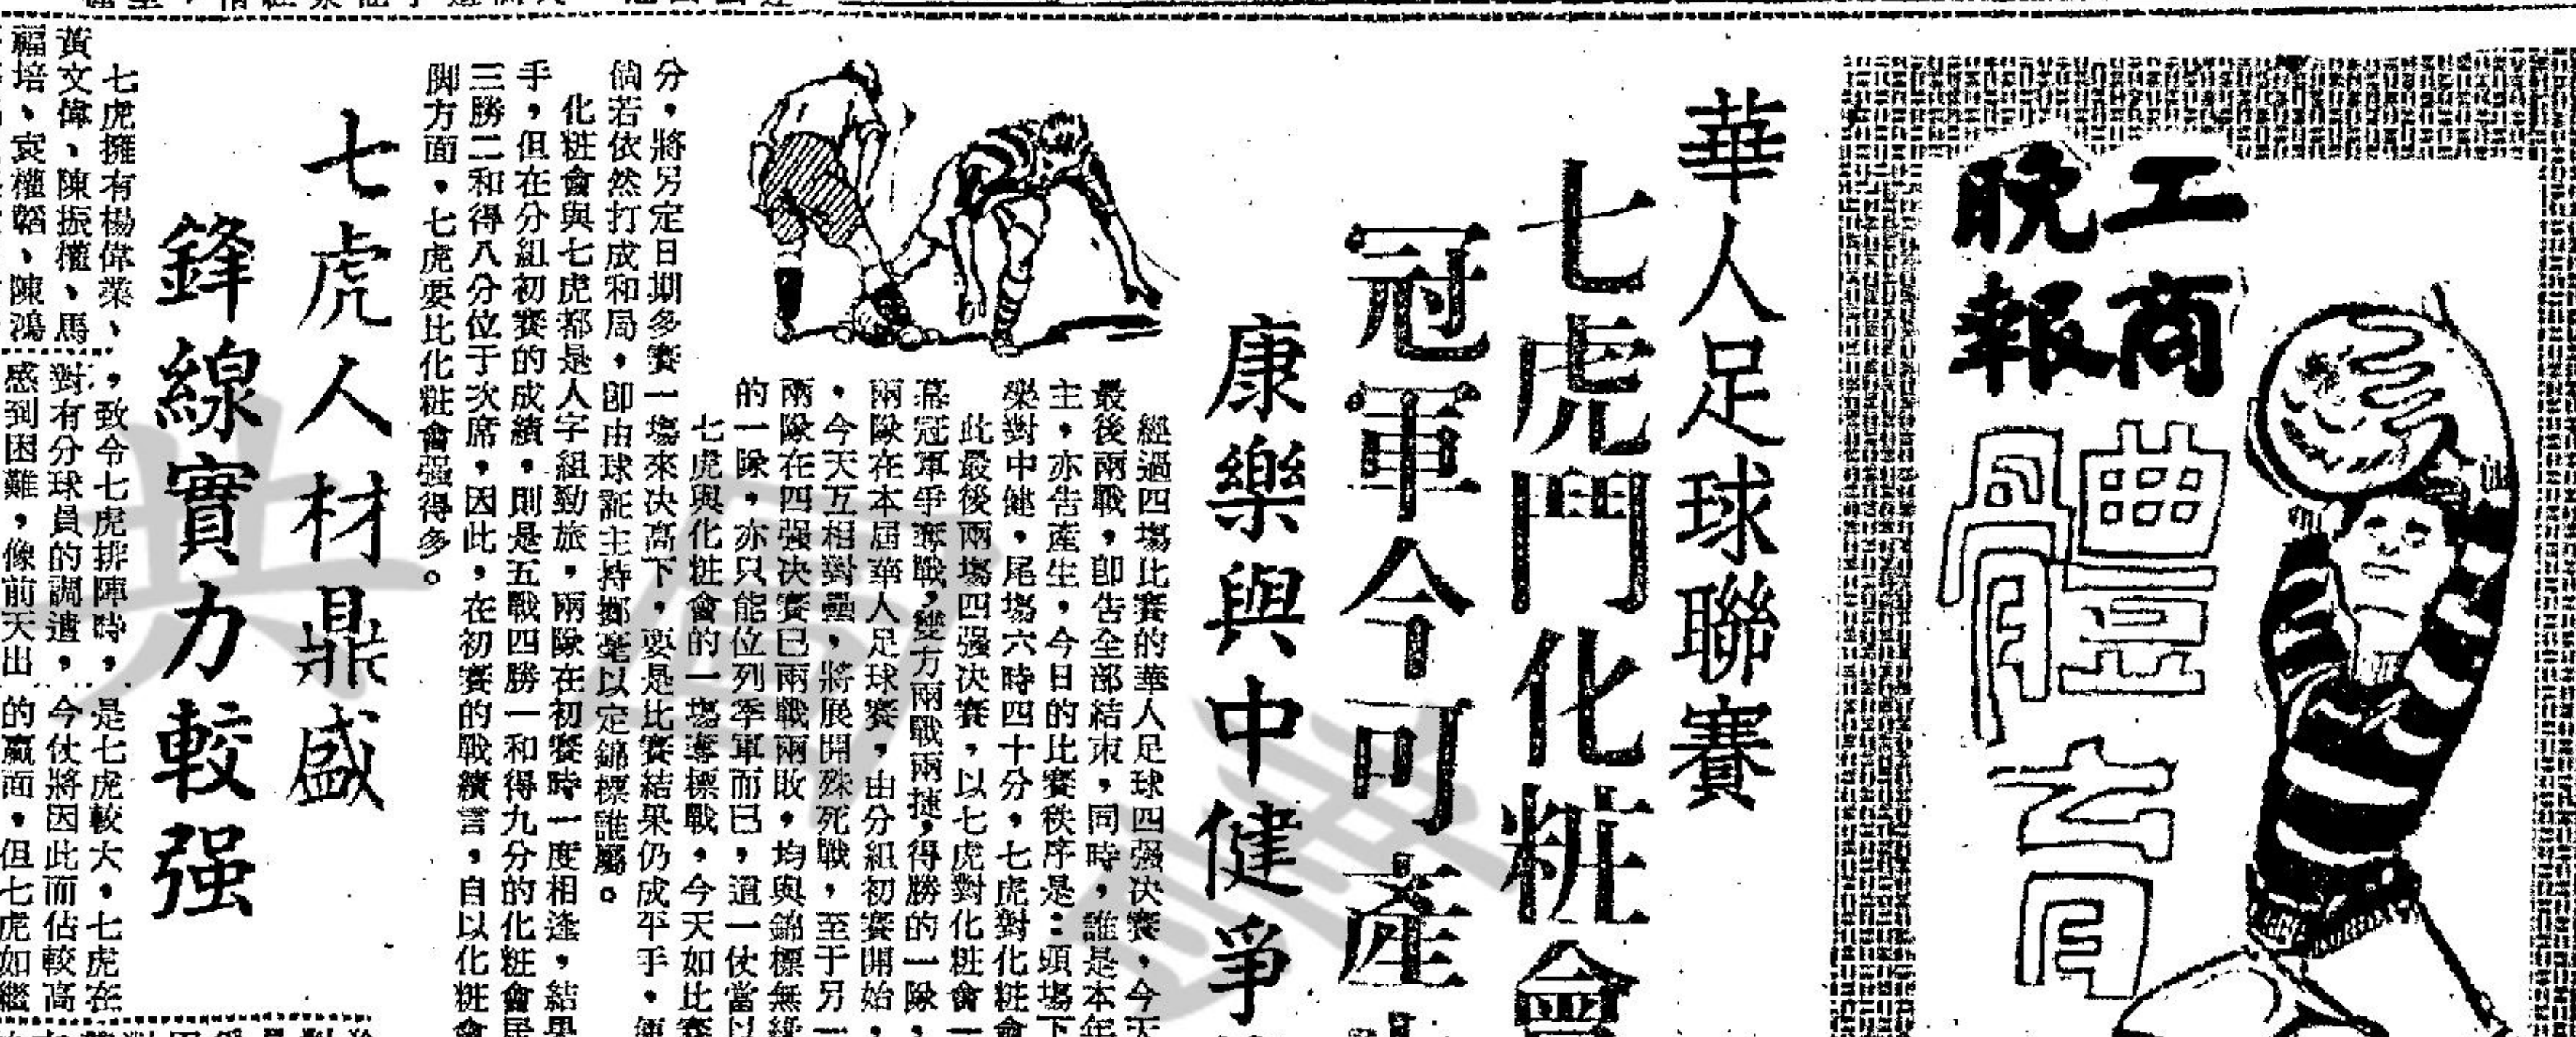 工商
晚報
體育
華人足球聯賽
七虎鬥化粧會
冠軍今可產
康樂與中健爭
經過四塲比賽的華人足球四强決賽，今天
最後兩戰，卽告全部結束，同時，誰是本年
主，亦告產生，今日的比賽秩序是：頭塲下
樂對中健，尾塲六時四十分，七虎對化粧會
此最後兩塲四强決賽，以七虎對化粧會一
幕冠軍爭奪戰，雙方兩戰兩捷，得勝的一隊，
兩隊在本屆華人足球賽，由分組初賽開始，
，今天互相對壘，將展開殊死戰，至于另一
兩隊在四强決賽已兩戰兩敗，均與錦標無緣
的一隊，亦只能位列季軍而已，這一仗當以
七虎與化粧會的一塲奪標戰，今天如比賽
分，將另定日期多賽一塲來决高下，要是比賽結果仍成平手，便
倘若依然打成和局，卽由球証主持擲毫以定錦標誰屬。
化粧會與七虎都是人字組勁旅，兩隊在初賽時一度相逢，結果
手，但在分組初賽的成績，則是五戰四勝一和得九分的化粧會居
三勝二和得八分位于次席，因此，在初賽的戰績言，自以化粧會
脚方面，七虎要比化粧會强得多。
七虎人材鼎盛
鋒線實力較强
七虎擁有楊偉業、
黃文偉、陳振權、馬
福培、袁權韜、陳鴻
，致令七虎排陣時，
對有分球員的調遣，
感到困難，像前天出
是七虎較大，七虎在
今仗將因此而估較高
的贏面，但七虎如繼